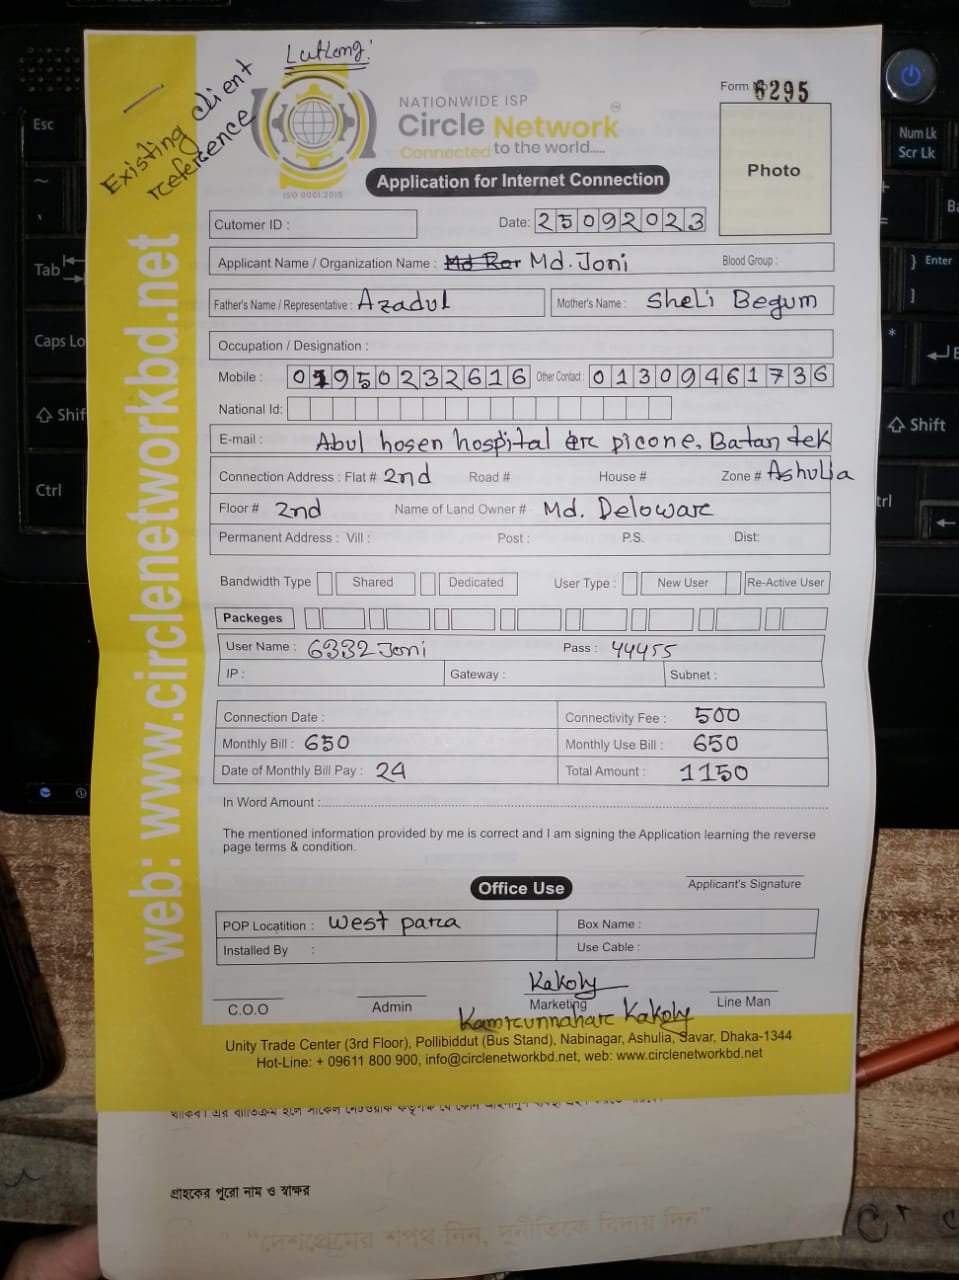 LutLong:
Existing client
reference
NATIONWIDE ISP
Circle Network
Connected to the world.....
ISO 9001:2015
Application for Internet Connection
Form No 6295
Photo
Cutomer ID :
Date: 25092023
Applicant Name / Organization Name : Md. Joni Blood Group :
Father's Name / Representative : Azadul Mother's Name : Sheli Begum
Occupation / Designation :
Mobile : 01950232616 Other Contact : 01309461736
National Id:
E-mail : Abul hosen hospital er picone, Batan tek
Connection Address : Flat # 2nd Road # House # Zone # Ashulia
Floor # 2nd Name of Land Owner # Md. Deloware
Permanent Address : Vill : Post : P.S. Dist:
Bandwidth Type Shared Dedicated User Type : New User Re-Active User
Packeges
User Name : 6332Joni Pass : 44455
IP : Gateway : Subnet :
Connection Date : Connectivity Fee : 500
Monthly Bill : 650 Monthly Use Bill : 650
Date of Monthly Bill Pay : 24 Total Amount : 1150
In Word Amount :
The mentioned information provided by me is correct and I am signing the Application learning the reverse
page terms & condition.
Applicant's Signature
Office Use
POP Locatition : West para Box Name :
Installed By : Use Cable :
Kakoly
C.O.O Admin Marketing Line Man
Kamrunnahar Kakoly
Unity Trade Center (3rd Floor), Pollibiddut (Bus Stand), Nabinagar, Ashulia, Savar, Dhaka-1344
Hot-Line: + 09611 800 900, info@circlenetworkbd.net, web: www.circlenetworkbd.net
web: www.circlenetworkbd.net
গ্রাহকের পুরো নাম ও স্বাক্ষর
"দেশপ্রেমের শপথ নিন, দুর্নীতিকে বিদায় দিন"
Esc
Tab
Caps Lo
Shif
Ctrl
Num Lk
Scr Lk
Enter
Shift